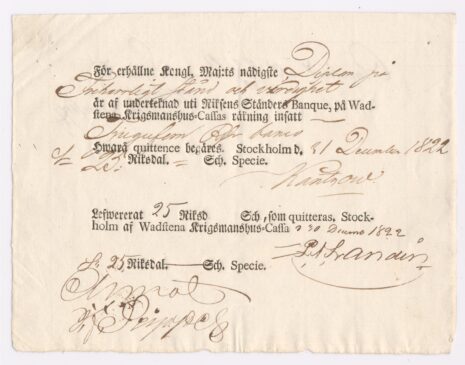 För erhållne Kongl. Maj:ts nådigste Diplom på
Friherrligt stånd och värdighet
är af underteknad uti Riksens Ständers Banque, på Wad-
stena Krigsmanshus-Cassas räkning insatt
Tjugufem R:dr banco
Hwarå quittence begäres. Stockholm d. 31 December 1822
25 Riksdal. Sch. Specie.
Leswererat 25 Riksd Sch, som quitteras, Stock-
holm af Wadstena Krigsmanshus-Cassa d 30 Decmb 1822
25 Riksdal. Sch. Specie.